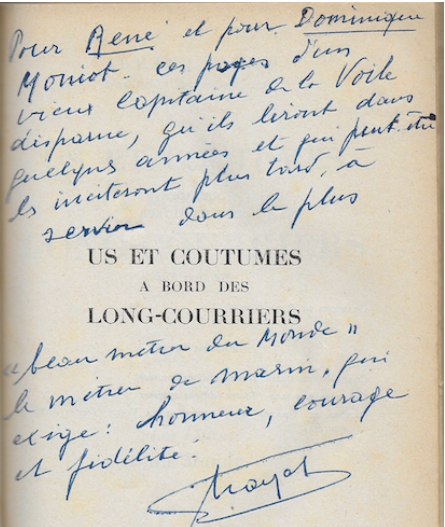 Pour René et pour Dominique
Moniot - ces pages d'un
vieux Capitaine de la Voile
disparue, qu'ils liront dans
quelques années et qui peut-être
les inciteront plus tard, à
servir dans le plus
US ET COUTUMES
A BORD DES
LONG-COURRIERS
"beau métier du Monde"
le métier de marin, qui
exige : honneur, courage
et fidélité.